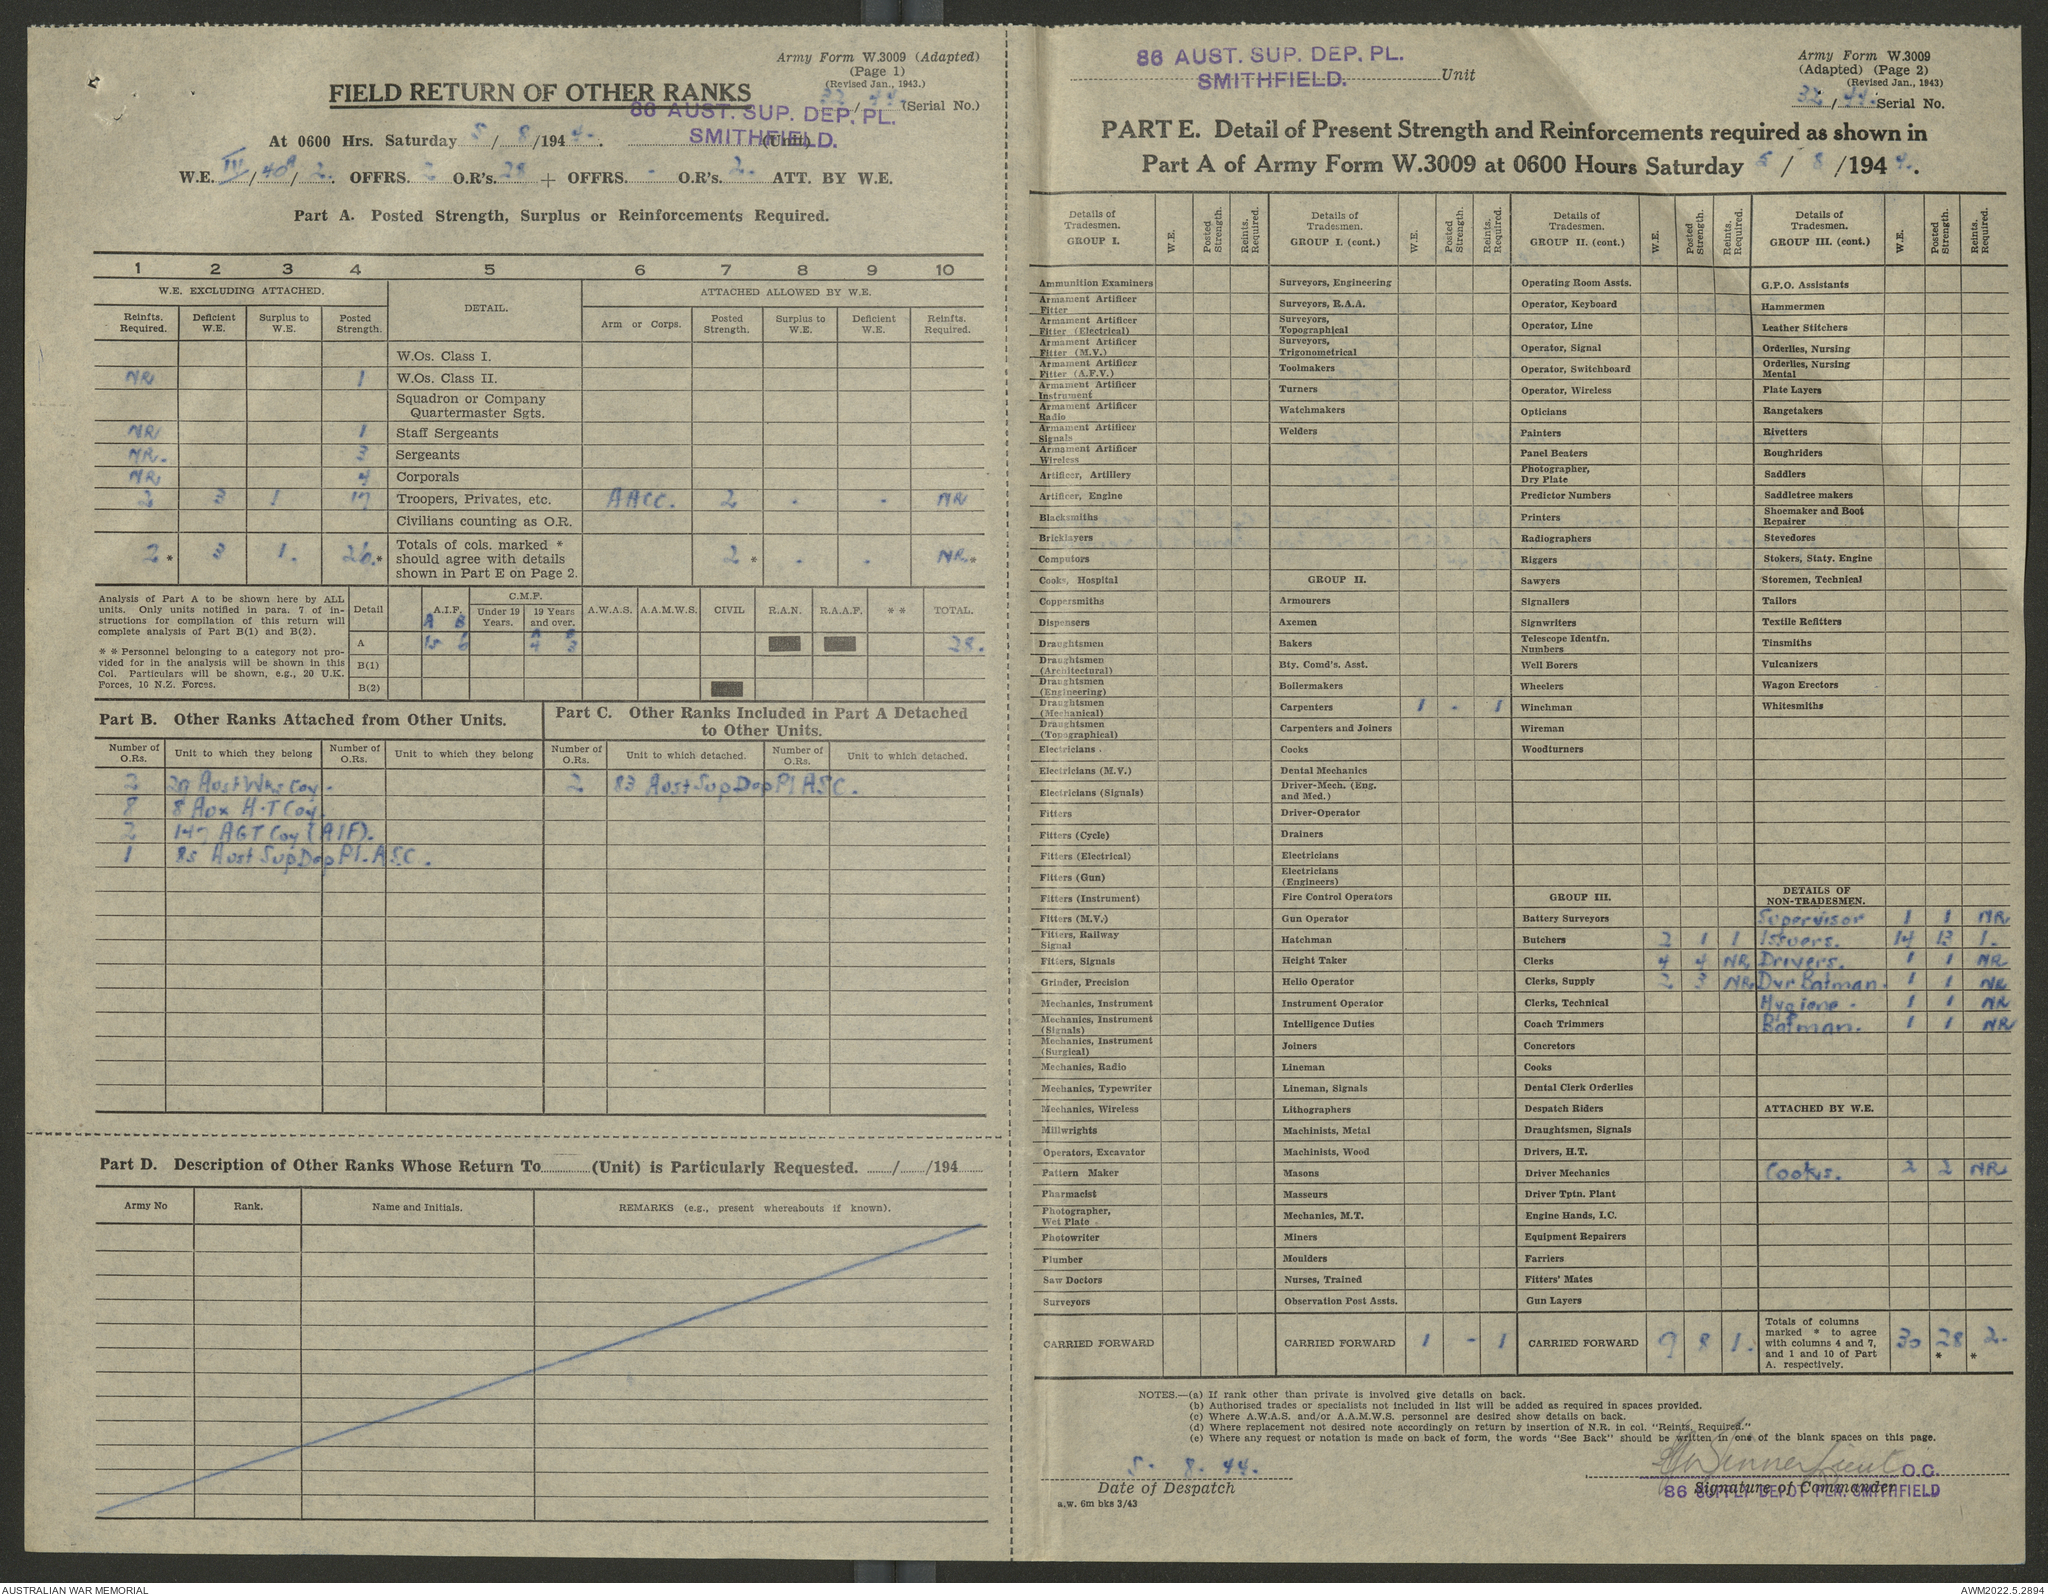 Army Form W.3009 (Adapted)
(Page 1)
(Revised Jan., 1943.)
FIELD RETURN OF OTHER RANKS
32 / 44 (Serial No.)
86 AUST. SUP. DEP. PL.
SMITHFIELD.
At 0600 Hrs. Saturday 5 / 8 /194 4. (Unit)
W.E. IV / 40A / 2. OFFRS. 2 O.R's. 28 + OFFRS. - O.R's. 2. ATT. BY W.E.
Part A. Posted Strength, Surplus or Reinforcements Required.
1 2 3 4 5 6 7 8 9 10
W.E. EXCLUDING ATTACHED. DETAIL. ATTACHED ALLOWED BY W.E.
Reinfts. Required. Deficient W.E. Surplus to W.E. Posted Strength. Arm or Corps. Posted Strength. Surplus to W.E. Deficient W.E. Reinfts. Required.
W.Os. Class I.
NR 1 W.Os. Class II.
Squadron or Company
Quartermaster Sgts.
NR 1 Staff Sergeants
NR. 3 Sergeants
NR 4 Corporals
2 3 1 17 Troopers, Privates, etc. AACC. 2 - - NR
Civilians counting as O.R.
2* 3 1. 26.* Totals of cols. marked * 2* - . NR*
should agree with details
shown in Part E on Page 2.
Analysis of Part A to be shown here by ALL
units. Only units notified in para. 7 of in-
structions for compilation of this return will
complete analysis of Part B(1) and B(2).
* * Personnel belonging to a category not pro-
vided for in the analysis will be shown in this
Col. Particulars will be shown, e.g., 20 U.K.
Forces, 10 N.Z. Forces.
Detail A.I.F. C.M.F. A.W.A.S. A.A.M.W.S. CIVIL R.A.N. R.A.A.F. * * TOTAL.
A B Under 19 Years. 19 Years and over.
A B
A 15 6 4 3 28.
B(1)
B(2)
Part B. Other Ranks Attached from Other Units.
Number of O.Rs. Unit to which they belong Number of O.Rs. Unit to which they belong
2 20 Aust Wks Coy.
8 8 Aux H.T Coy
2 147 AGT Coy (AIF).
1 85 Aust Sup Dep Pl. ASC.
Part C. Other Ranks Included in Part A Detached
to Other Units.
Number of O.Rs. Unit to which detached. Number of O.Rs. Unit to which detached.
2 83 Aust Sup Dep Pl ASC.
Part D. Description of Other Ranks Whose Return To (Unit) is Particularly Requested. / /194
Army No Rank. Name and Initials. REMARKS (e.g., present whereabouts if known).
86 AUST. SUP. DEP. PL.
SMITHFIELD.
Unit
Army Form W.3009
(Adapted) (Page 2)
(Revised Jan., 1943)
32 / 44. Serial No.
PART E. Detail of Present Strength and Reinforcements required as shown in
Part A of Army Form W.3009 at 0600 Hours Saturday 5 / 8 /194 4.
Details of Tradesmen. GROUP I. W.E. Posted Strength. Reints. Required.
Ammunition Examiners
Armament Artificer Fitter
Armament Artificer Fitter (Electrical)
Armament Artificer Fitter (M.V.)
Armament Artificer Fitter (A.F.V.)
Armament Artificer Instrument
Armament Artificer Radio
Armament Artificer Signals
Armament Artificer Wireless
Artificer, Artillery
Artificer, Engine
Blacksmiths
Bricklayers
Computors
Cooks, Hospital
Coppersmiths
Dispensers
Draughtsmen
Draughtsmen (Architectural)
Draughtsmen (Engineering)
Draughtsmen (Mechanical)
Draughtsmen (Topographical)
Electricians
Electricians (M.V.)
Electricians (Signals)
Fitters
Fitters (Cycle)
Fitters (Electrical)
Fitters (Gun)
Fitters (Instrument)
Fitters (M.V.)
Fitters, Railway Signal
Fitters, Signals
Grinder, Precision
Mechanics, Instrument
Mechanics, Instrument (Signals)
Mechanics, Instrument (Surgical)
Mechanics, Radio
Mechanics, Typewriter
Mechanics, Wireless
Millwrights
Operators, Excavator
Pattern Maker
Pharmacist
Photographer, Wet Plate
Photowriter
Plumber
Saw Doctors
Surveyors
CARRIED FORWARD
Details of Tradesmen. GROUP I. (cont.) W.E. Posted Strength. Reints. Required.
Surveyors, Engineering
Surveyors, R.A.A.
Surveyors, Topographical
Surveyors, Trigonometrical
Toolmakers
Turners
Watchmakers
Welders
GROUP II.
Armourers
Axemen
Bakers
Bty. Comd's. Asst.
Boilermakers
Carpenters 1 - 1
Carpenters and Joiners
Cooks
Dental Mechanics
Driver-Mech. (Eng. and Med.)
Driver-Operator
Drainers
Electricians
Electricians (Engineers)
Fire Control Operators
Gun Operator
Hatchman
Height Taker
Helio Operator
Instrument Operator
Intelligence Duties
Joiners
Lineman
Lineman, Signals
Lithographers
Machinists, Metal
Machinists, Wood
Masons
Masseurs
Mechanics, M.T.
Miners
Moulders
Nurses, Trained
Observation Post Assts.
CARRIED FORWARD 1 - 1
Details of Tradesmen. GROUP II. (cont.) W.E. Posted Strength. Reints. Required.
Operating Room Assts.
Operator, Keyboard
Operator, Line
Operator, Signal
Operator, Switchboard
Operator, Wireless
Opticians
Painters
Panel Beaters
Photographer, Dry Plate
Predictor Numbers
Printers
Radiographers
Riggers
Sawyers
Signallers
Signwriters
Telescope Identfn. Numbers
Well Borers
Wheelers
Winchman
Wireman
Woodturners
GROUP III.
Battery Surveyors
Butchers 2 1 1
Clerks 4 4 NR
Clerks, Supply 2 3 NR
Clerks, Technical
Coach Trimmers
Concretors
Cooks
Dental Clerk Orderlies
Despatch Riders
Draughtsmen, Signals
Drivers, H.T.
Driver Mechanics
Driver Tptn. Plant
Engine Hands, I.C.
Equipment Repairers
Farriers
Fitters' Mates
Gun Layers
CARRIED FORWARD 9 8 1.
Details of Tradesmen. GROUP III. (cont.) W.E. Posted Strength. Reints. Required.
G.P.O. Assistants
Hammermen
Leather Stitchers
Orderlies, Nursing
Orderlies, Nursing Mental
Plate Layers
Rangetakers
Rivetters
Roughriders
Saddlers
Saddletree makers
Shoemaker and Boot Repairer
Stevedores
Stokers, Staty. Engine
Storemen, Technical
Tailors
Textile Refitters
Tinsmiths
Vulcanizers
Wagon Erectors
Whitesmiths
DETAILS OF NON-TRADESMEN.
Supervisor 1 1 NR
Issuers. 14 13 1.
Drivers. 1 1 NR
Dvr Batman. 1 1 NR
Hygiene. 1 1 NR
Batman. 1 1 NR
ATTACHED BY W.E.
Cooks. 2 2 NR
Totals of columns marked * to agree with columns 4 and 7, and 1 and 10 of Part A. respectively. 30 28* 2.*
NOTES.—(a) If rank other than private is involved give details on back.
(b) Authorised trades or specialists not included in list will be added as required in spaces provided.
(c) Where A.W.A.S. and/or A.A.M.W.S. personnel are desired show details on back.
(d) Where replacement not desired note accordingly on return by insertion of N.R. in col. "Reints. Required."
(e) Where any request or notation is made on back of form, the words "See Back" should be written in one of the blank spaces on this page.
5. 8. 44.
Date of Despatch
a.w. 6m bks 3/43
Lieut O.C.
Signature of Commander
86 SUPPLY DEPOT PLN. SMITHFIELD
AUSTRALIAN WAR MEMORIAL
AWM2022.5.2894